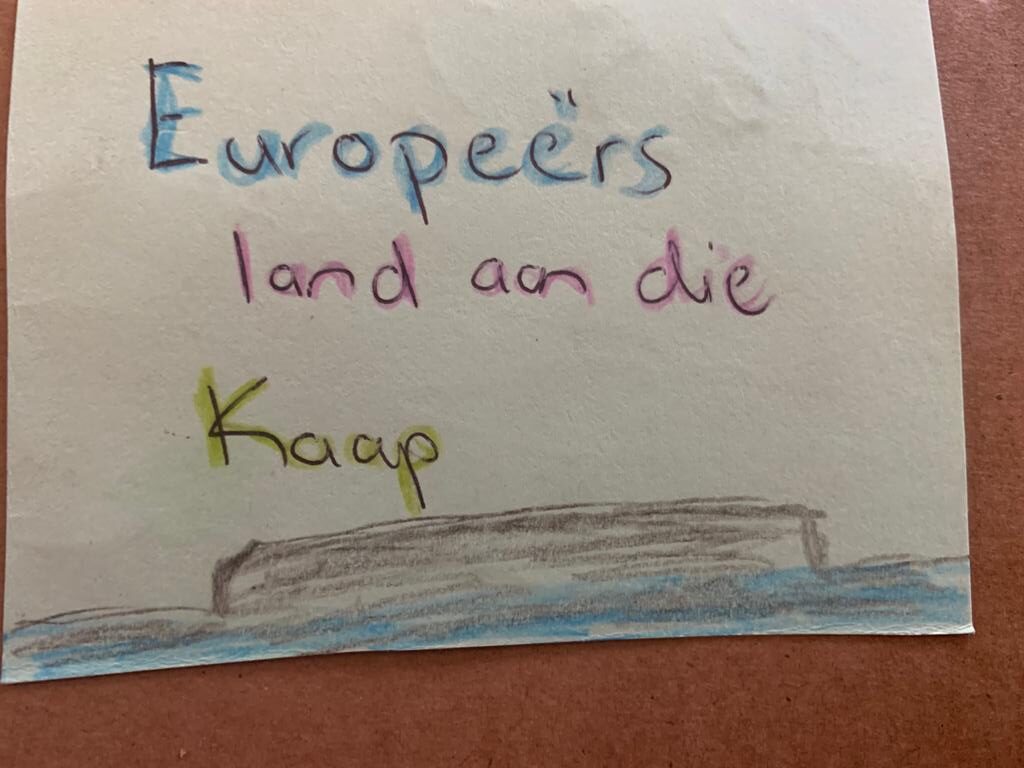 Europeërs
land aan die
Kaap